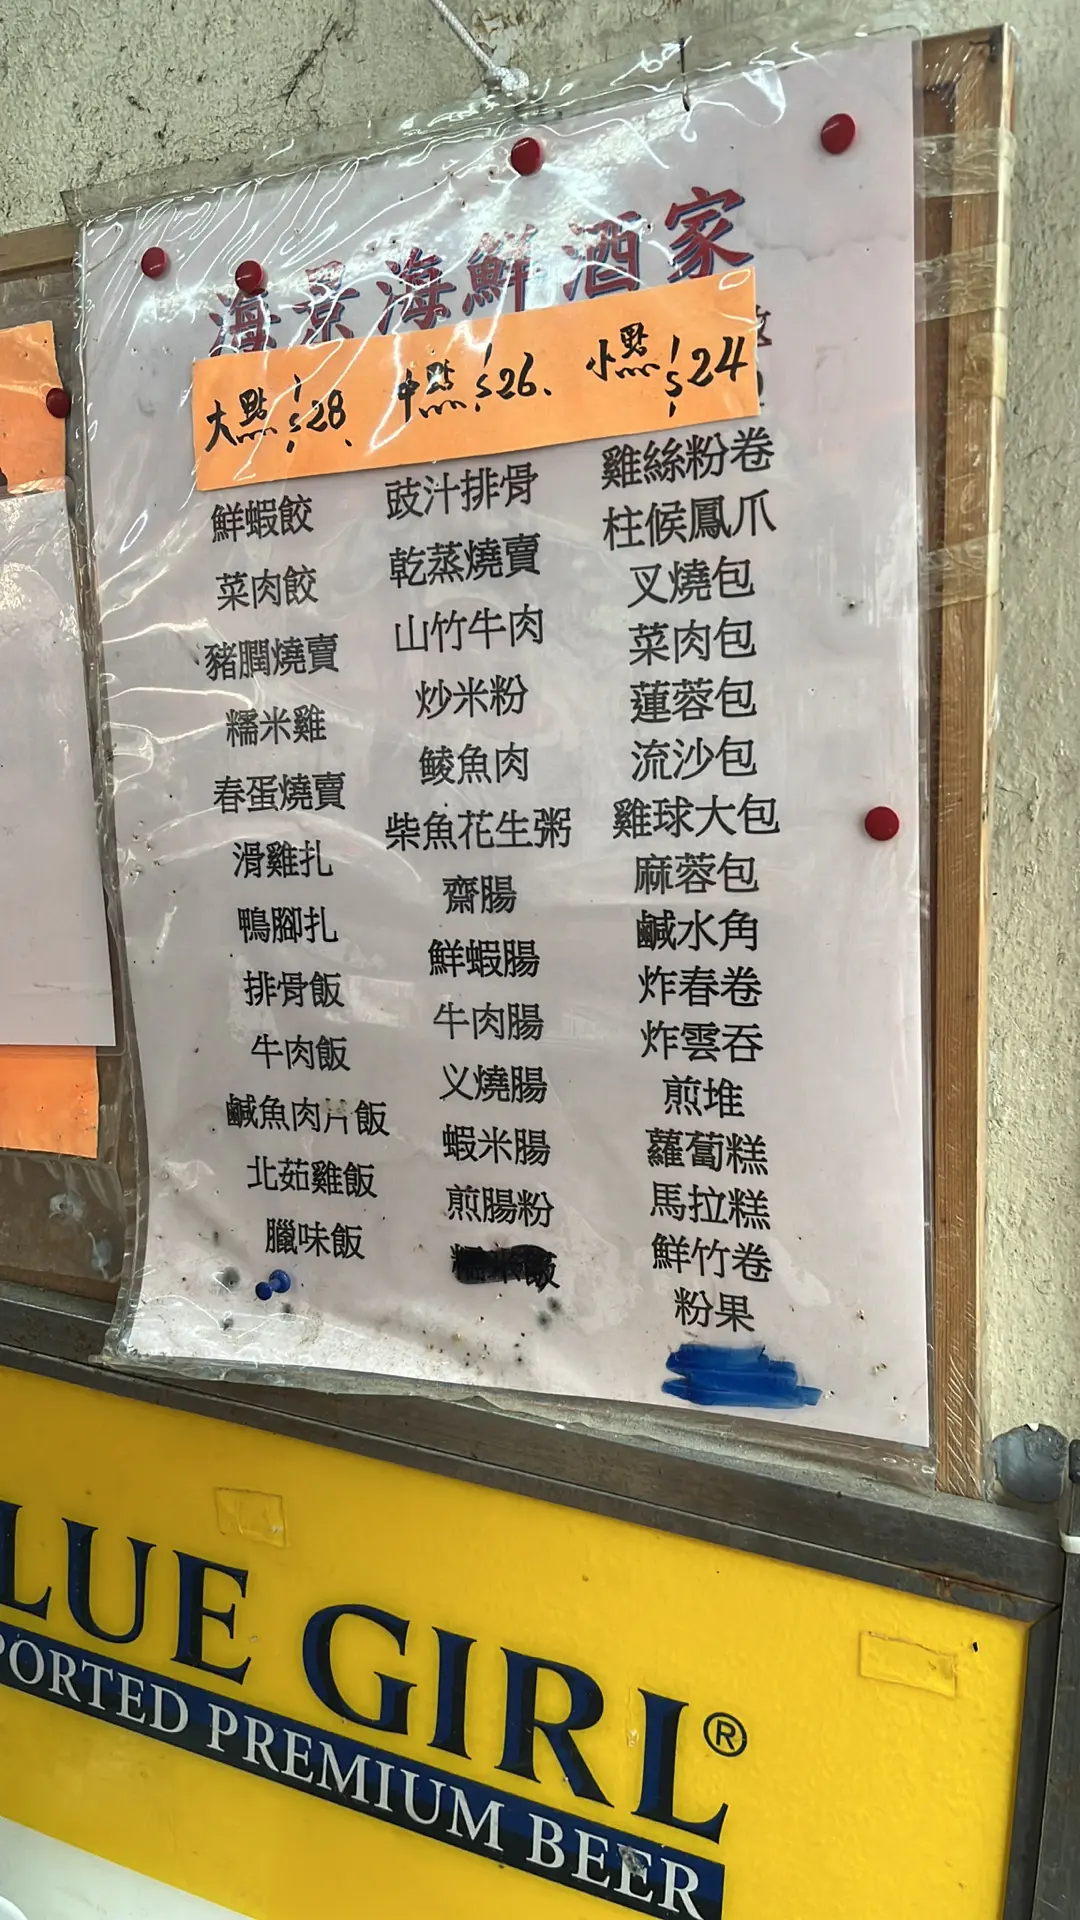 海景海鮮酒家
大點 $28. 中點 $26. 小點 $24
鮮蝦餃
菜肉餃
豬膶燒賣
糯米雞
春蛋燒賣
滑雞扎
鴨腳扎
排骨飯
牛肉飯
鹹魚肉片飯
北茹雞飯
臘味飯
豉汁排骨
乾蒸燒賣
山竹牛肉
炒米粉
鯪魚肉
柴魚花生粥
齋腸
鮮蝦腸
牛肉腸
义燒腸
蝦米腸
煎腸粉
雞絲粉卷
柱候鳳爪
叉燒包
菜肉包
蓮蓉包
流沙包
雞球大包
麻蓉包
鹹水角
炸春卷
炸雲吞
煎堆
蘿蔔糕
馬拉糕
鮮竹卷
粉果
LUE GIRL®
PORTED PREMIUM BEER